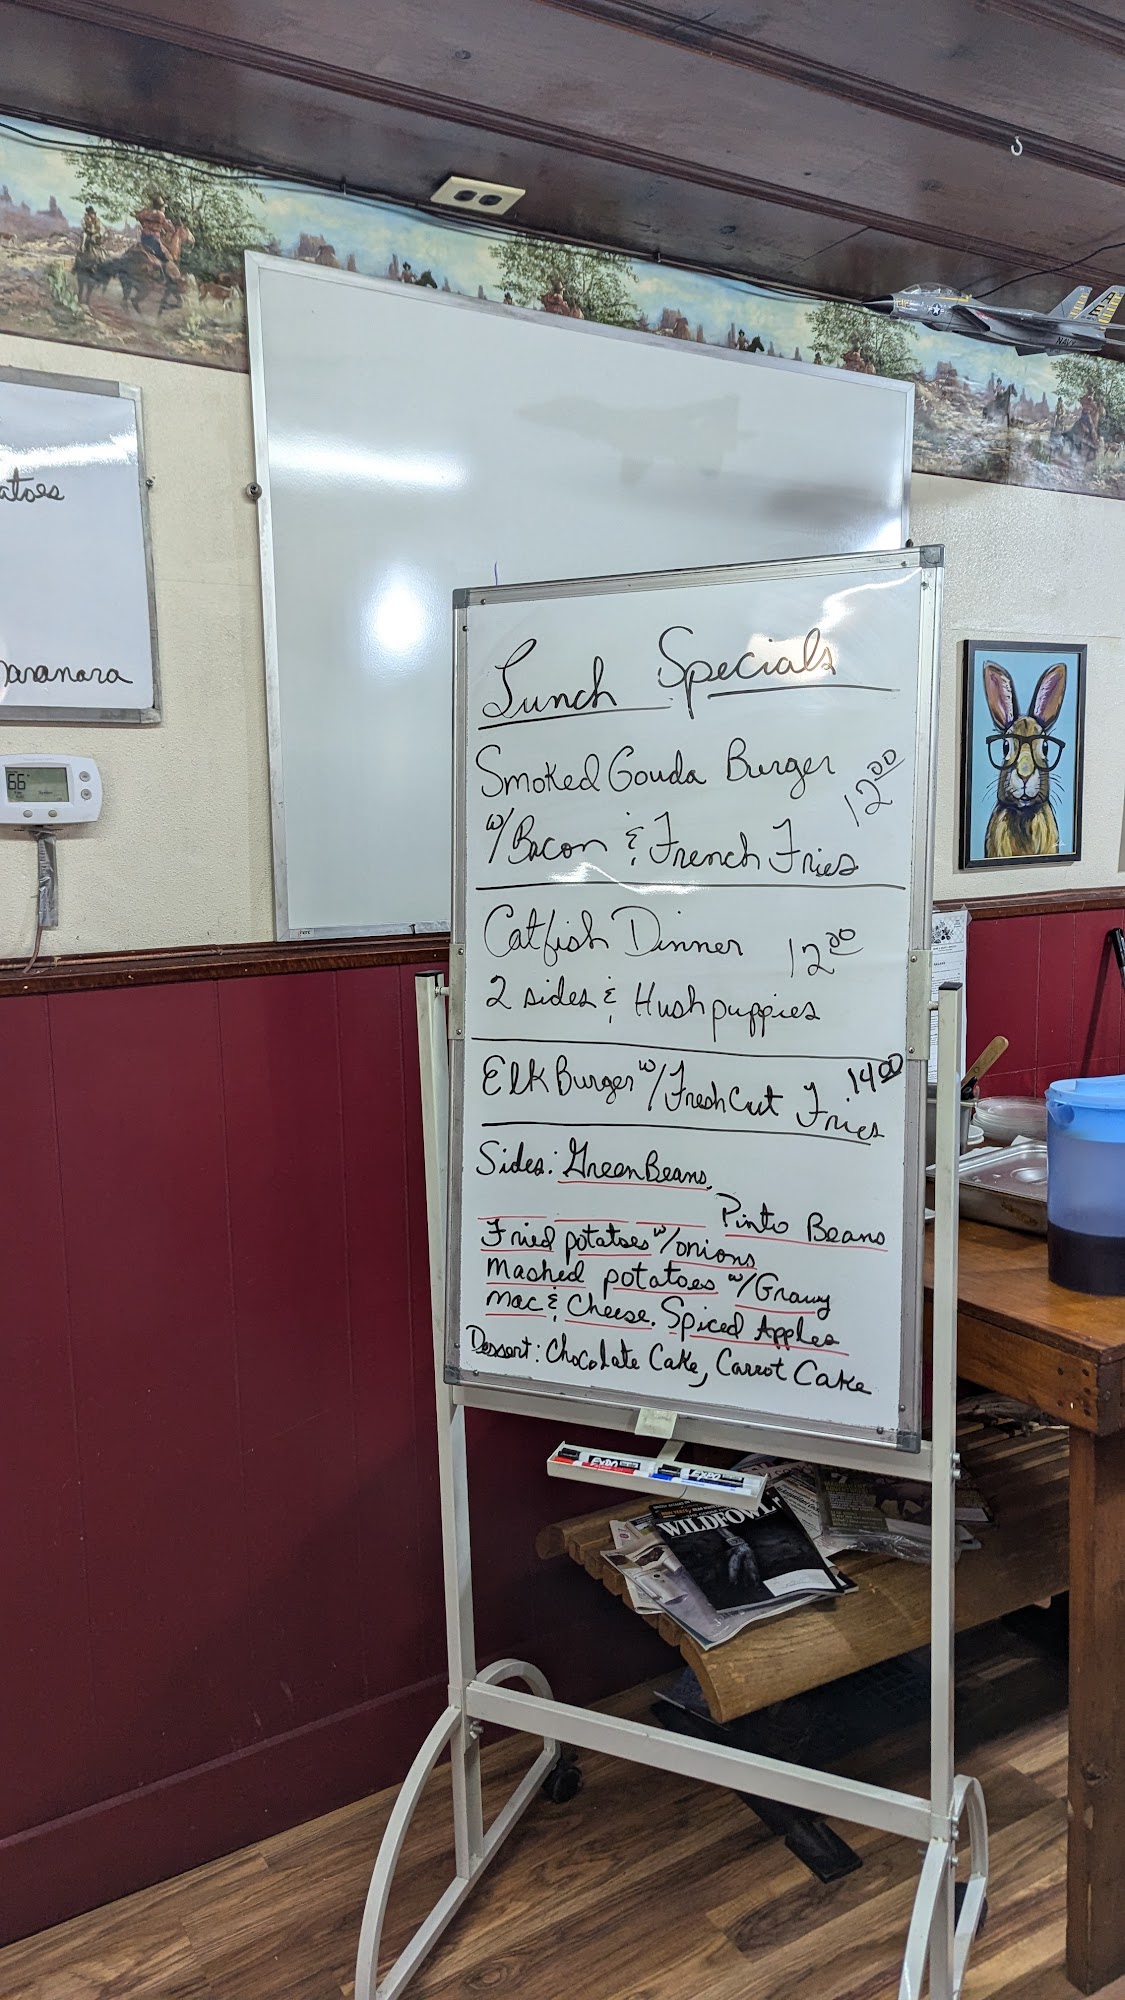 atoes
aranara
66°
Lunch Specials
Smoked Gouda Burger
12.00
w/Bacon & French Fries
Catfish Dinner 12.00
2 sides & Hushpuppies
Elk Burger w/ Fresh Cut Fries 14.00
Sides: Green Beans,
Pinto Beans
Fried potatoes w/onions
Mashed potatoes w/Gravy
Mac & Cheese. Spiced Apples
Dessert: Chocolate Cake, Carrot Cake
EXPO
EXPO
WILDFOWL
NAVY